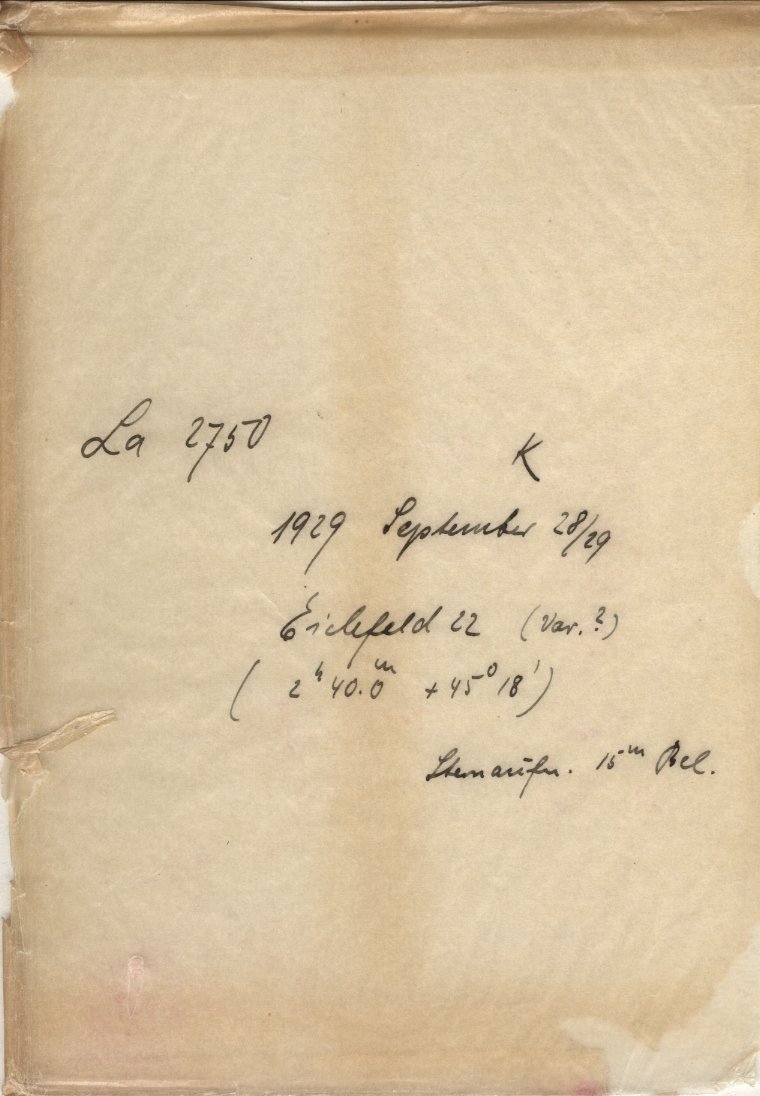 La 2750
K
1929 September 28/29
Eichfeld 22 (Var.?)
( 2ʰ 40.0ᵐ +45° 18' )
Sternaufn. 15ᵐ Bel.